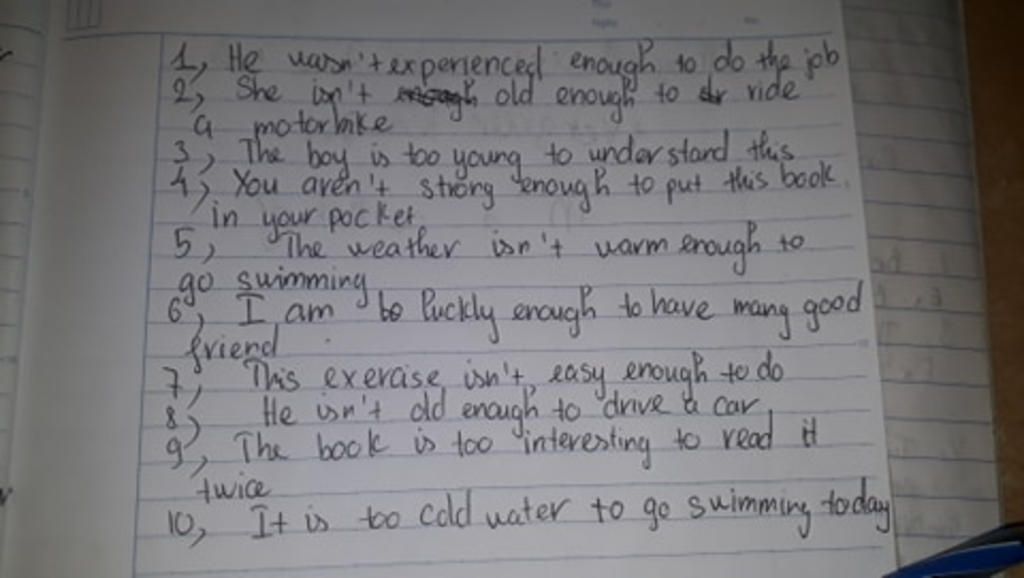 1, He wasn't experienced enough to do the job
2, She isn't old enough to ride
a motorbike
3, The boy is too young to understand this
4, You aren't strong enough to put this book
in your pocket
5, The weather isn't warm enough to
go swimming
6, I am be luckly enough to have mang good
friend
7, This exercise isn't easy enough to do
8, He isn't old enough to drive a car
9, The book is too interesting to read it
twice
10, It is too cold water to go swimming today